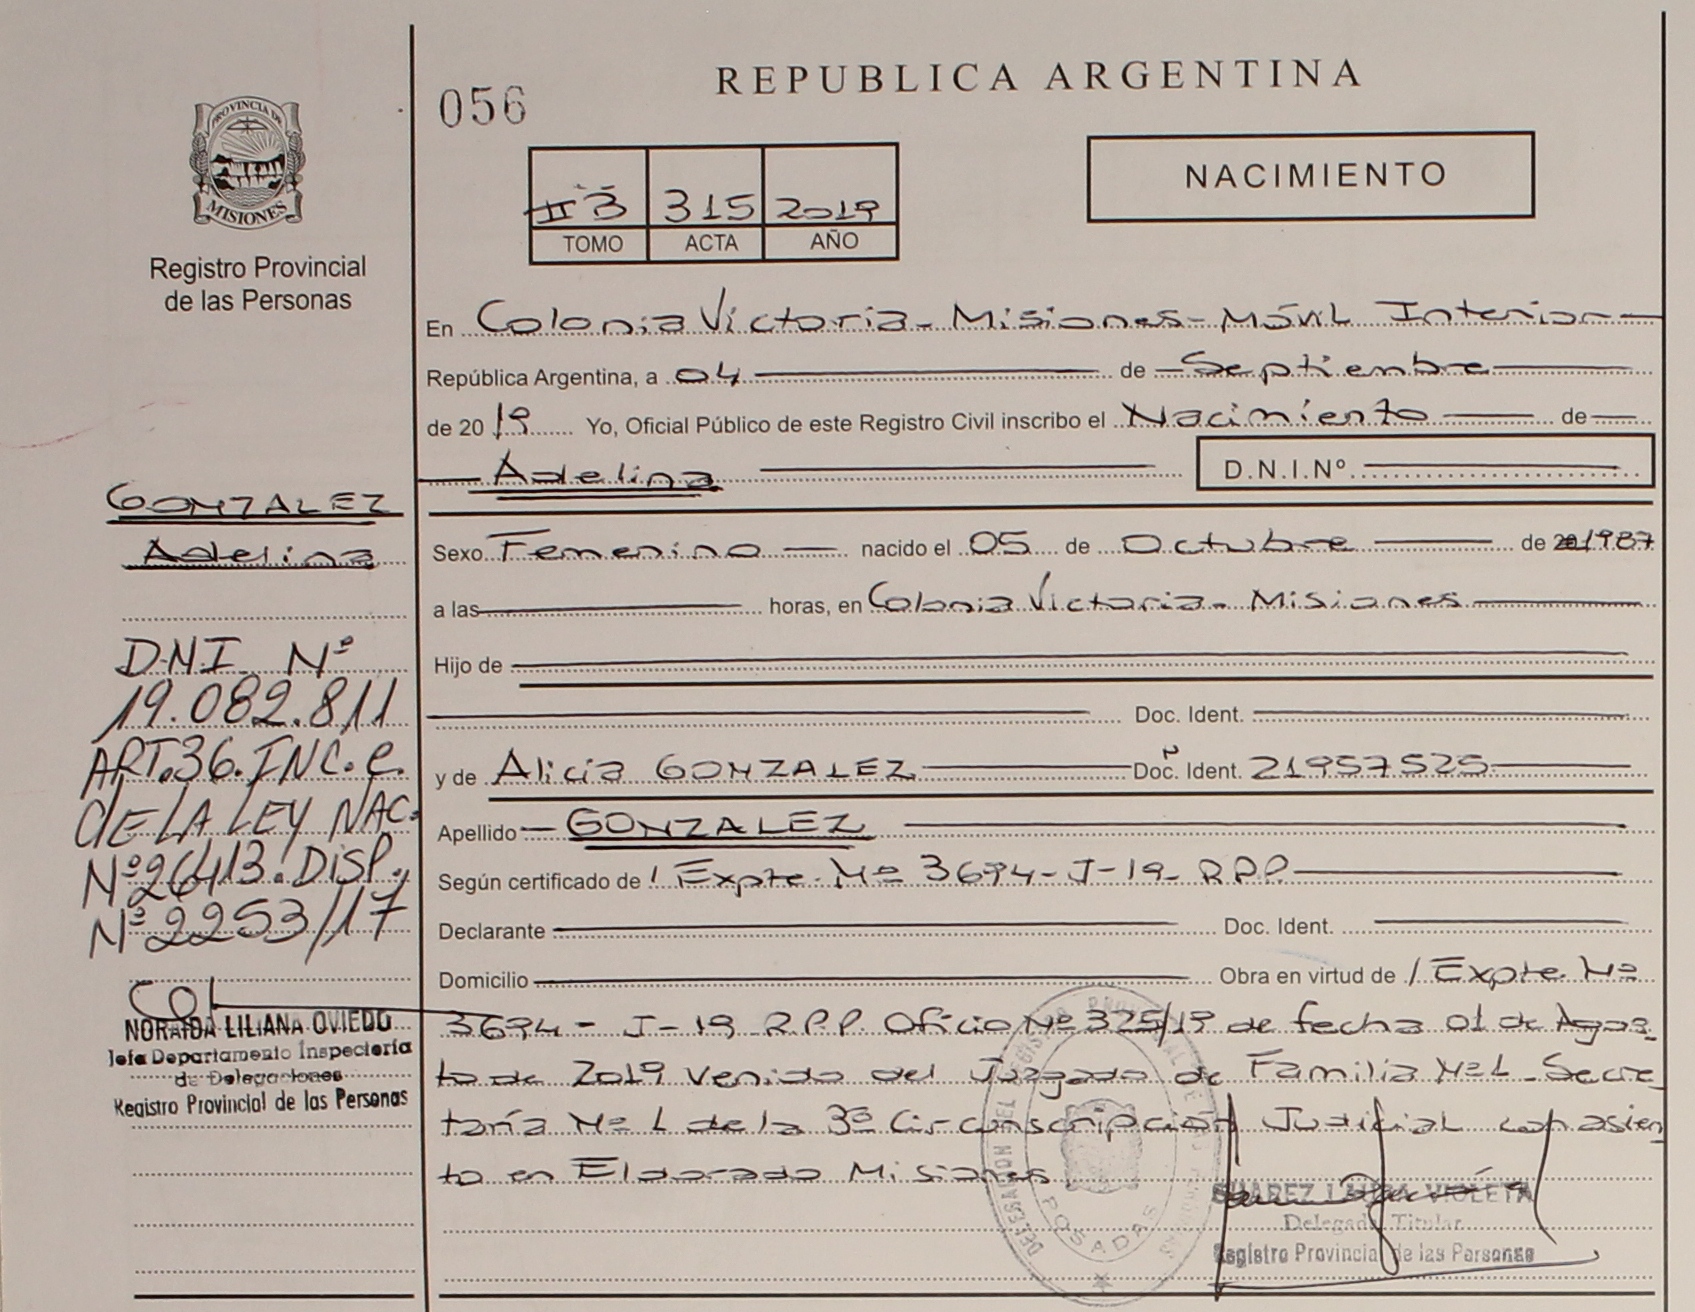 PROVINCIA DE
MISIONES
Registro Provincial
de las Personas
GONZALEZ
Adelina
D.N.I. Nº
19.082.811
ART.36.INC.c.
de LA LEY NAC.
Nº26413.DISP.
Nº2253/17
NORAIDA LILIANA OVIEDO
Jefa Departamento Inspectoría
de Delegaciones
Registro Provincial de las Personas
056
REPUBLICA ARGENTINA
NACIMIENTO
II 3 315 2019
TOMO ACTA AÑO
En Colonia Victoria - Misiones - Móvil Interior
República Argentina, a 04 de Septiembre
de 2019 Yo, Oficial Público de este Registro Civil inscribo el Nacimiento de
Adelina D.N.I.Nº
Sexo Femenino nacido el 05 de Octubre de 1987
a las horas, en Colonia Victoria - Misiones
Hijo de
Doc. Ident.
y de Alicia GONZALEZ Doc. Ident. 21957525
Apellido GONZALEZ
Según certificado de / Expte. Nº 3694-J-19- R.P.P.
Declarante Doc. Ident.
Domicilio Obra en virtud de / Expte. Nº
3694 - J-19 R.P.P. Oficio Nº 325/19 de fecha 01 de Agos-
to de 2019 venido del Juzgado de Familia Nº1 - Secre-
taría Nº 1 de la 3ª Circunscripción Judicial con asien-
to en Eldorado Misiones
POSADAS
SUAREZ LAURA VIOLETA
Delegada Titular
Registro Provincial de las Personas